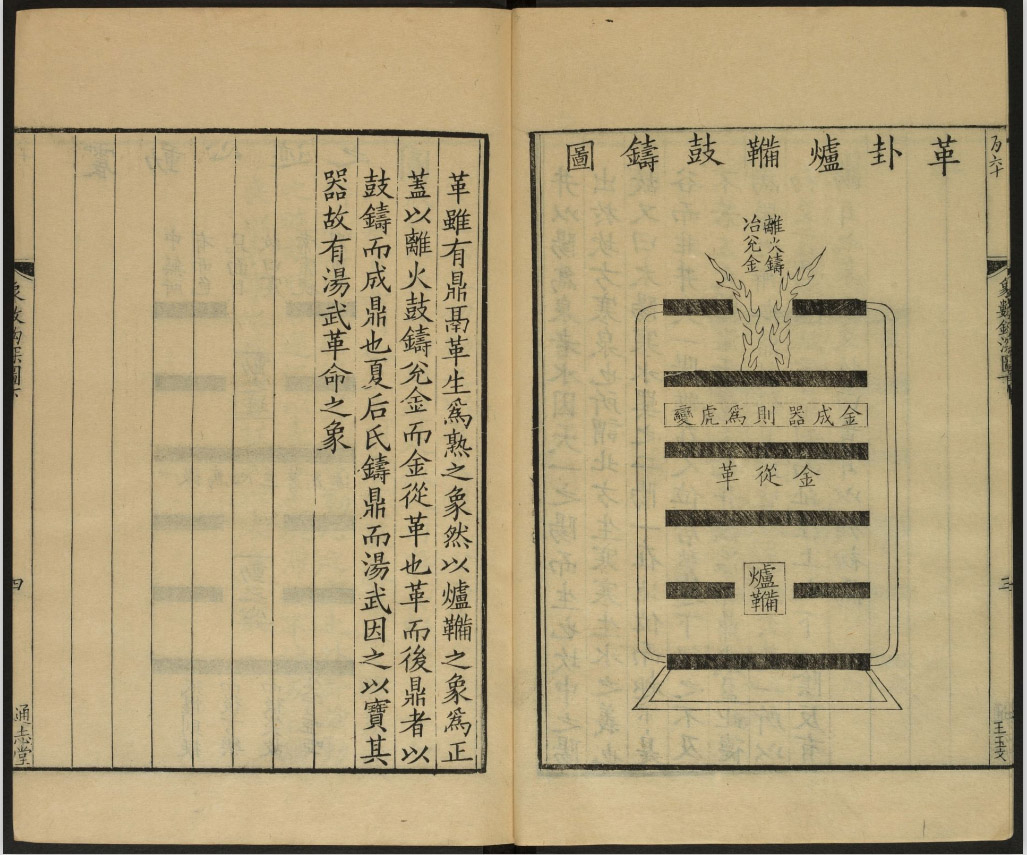 革卦爐鞴鼓鑄圖
離火鑄
冶兊金
金成器則爲虎變
金從革
爐
鞴
象數鉤深圖下
三
王玉
革雖有鼎鬲革生爲熟之象然以爐鞴之象爲正
葢以離火鼓鑄兊金而金從革也革而後鼎者以
鼓鑄而成鼎也夏后氏鑄鼎而湯武因之以寶其
器故有湯武革命之象
四
通志堂